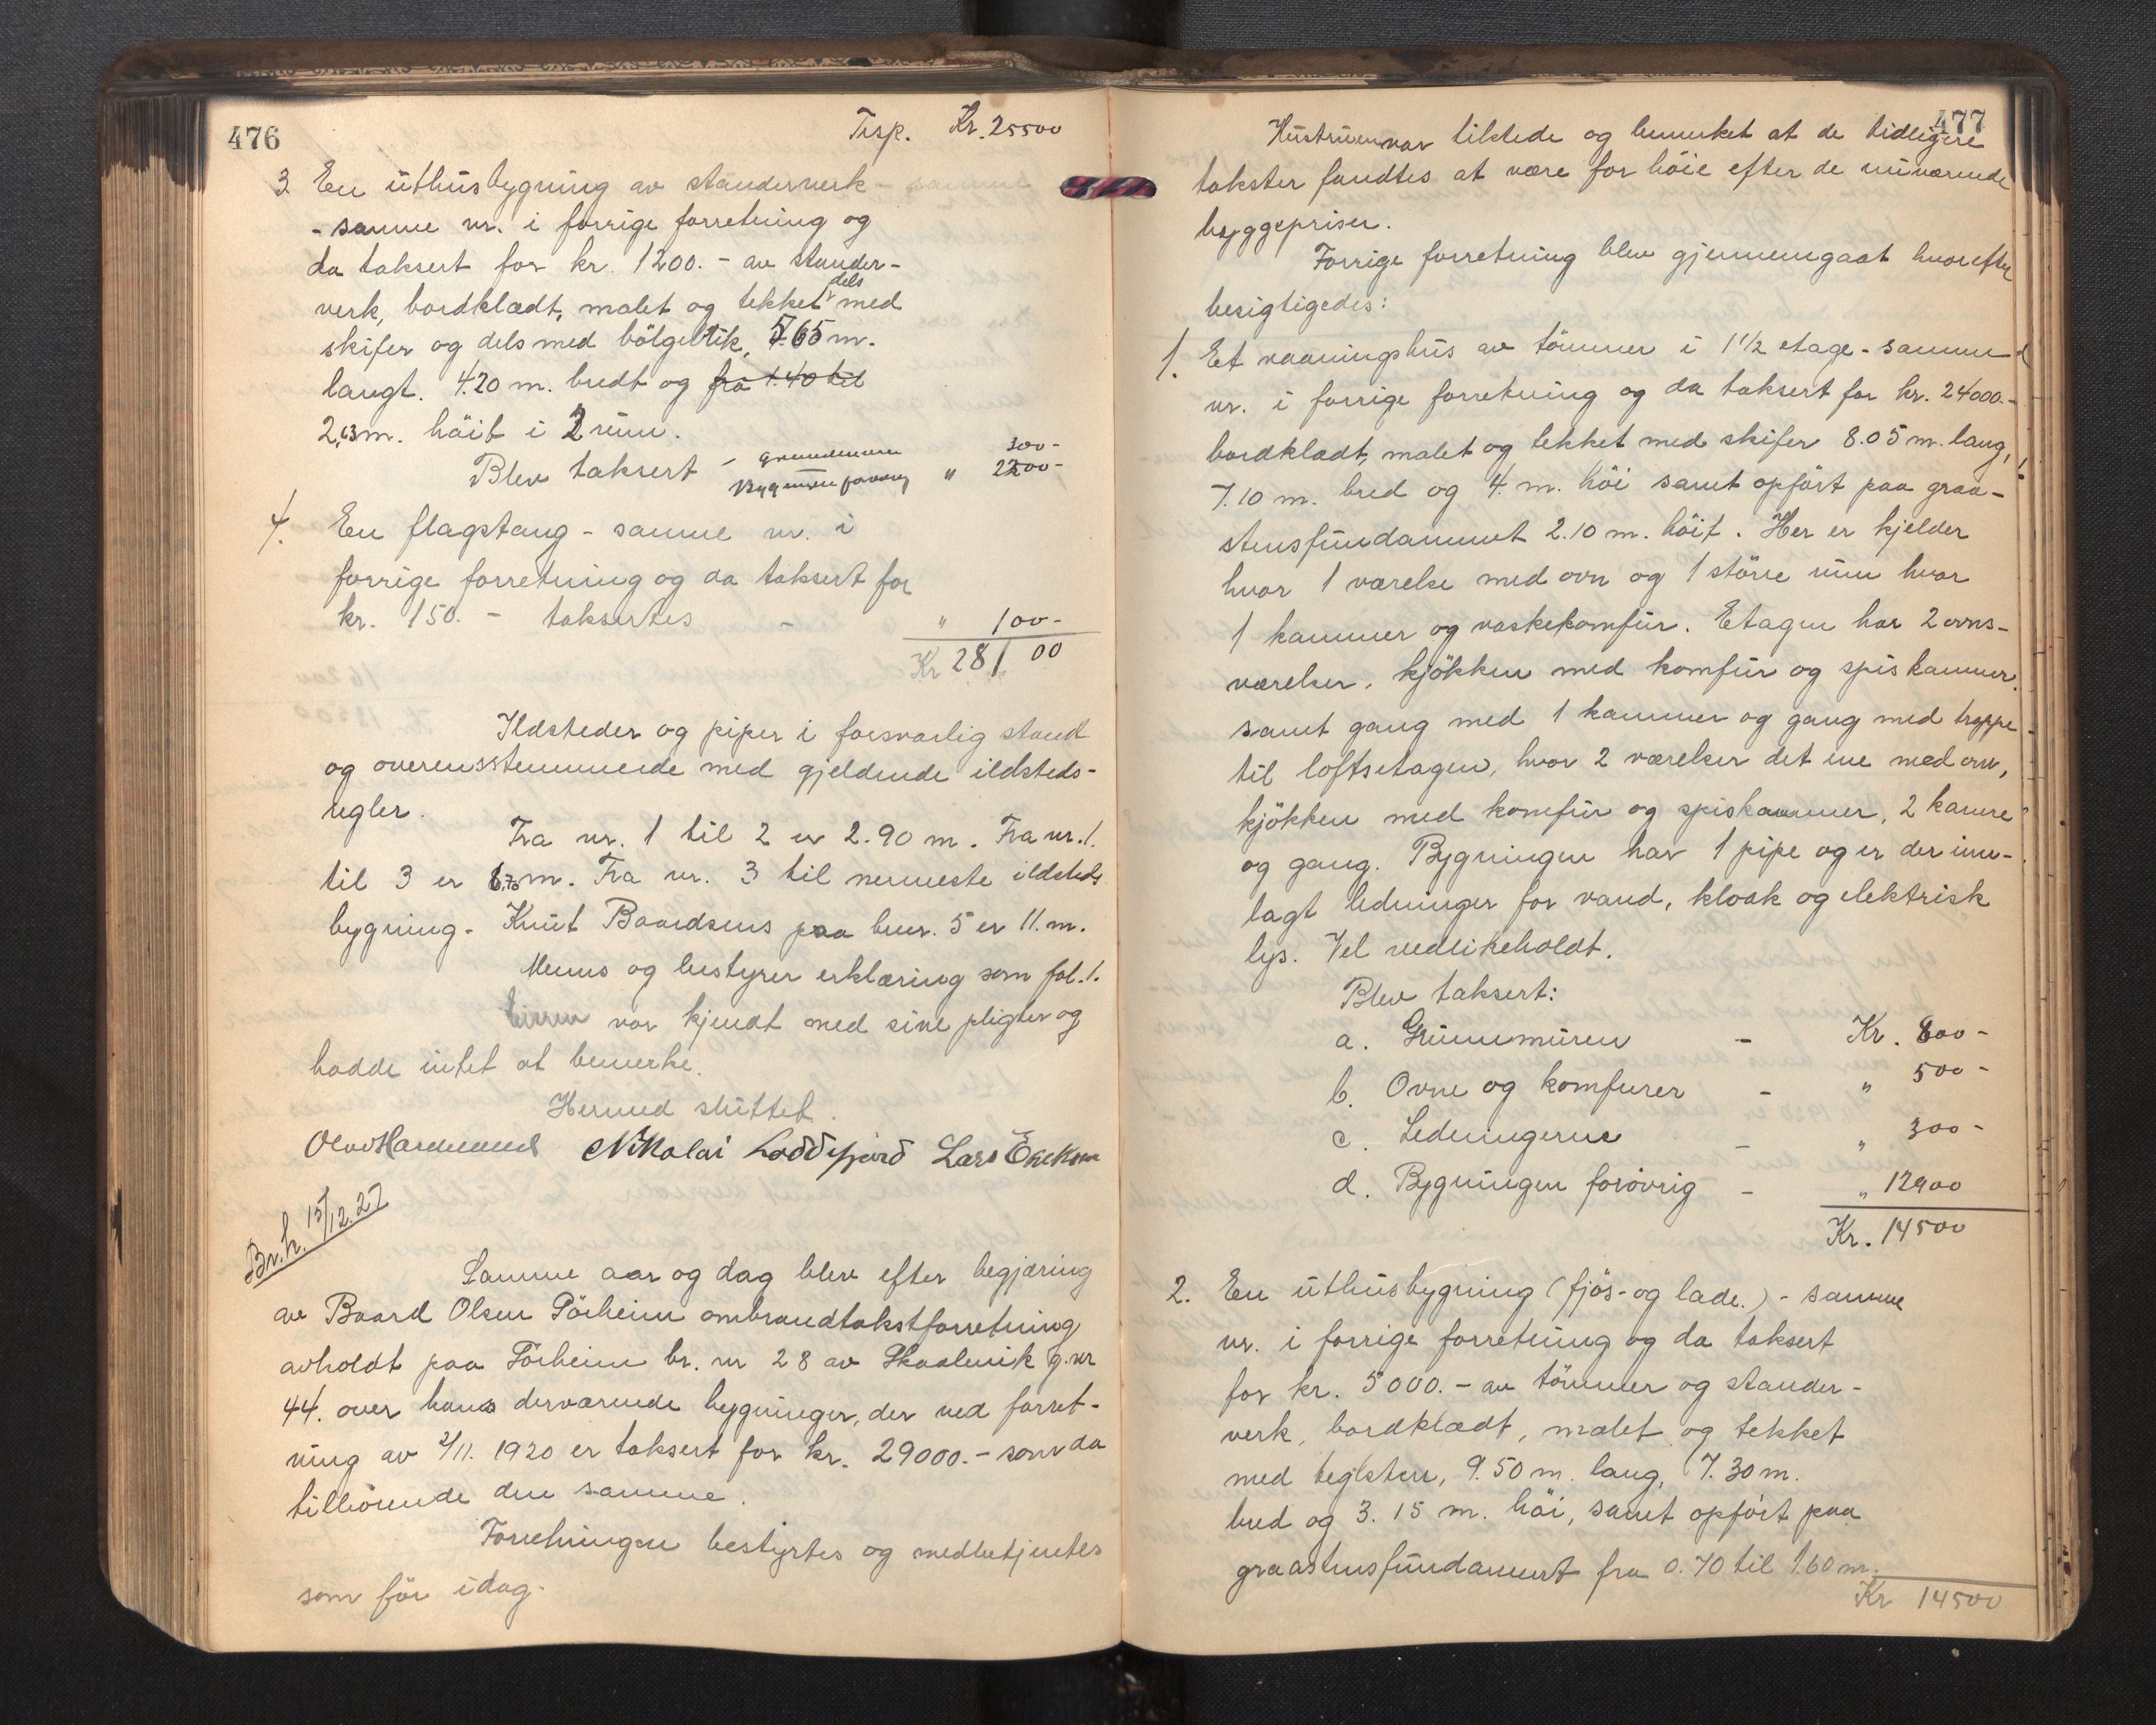 476
Trsp. Kr. 25500
3 En uthusbygning av standerverk -
- samme nr. i forrige forretning og
da taksert for kr. 1200. - av stander-
verk, bordklædt, malet og tekket dels med
skifer og dels med bölgeblik, 5.65 m.
langt. 4.20 m. bredt og fra 1.40 til
2,13 m. höit i 2 rum.
Blev taksert - grundmuren 300-
Bygningen forøvrig " 2200-
4. En flagstang - samme nr. i
forrige forretning og da taksert for
kr. 150. - taksertes - " 100-
Kr 28100
Ildsteder og piper i forsvarlig stand
og overensstemmende med gjeldende ildsteds-
regler.
Fra nr. 1 til 2 er 2.90 m. Fra nr. 1.
til 3 er 6,70 m. Fra nr. 3 til nermeste ildsteds
bygning - Knut Baardsens paa bnr. 5 er 11. m.
Mens og bestyrer erklæring som fol. 1.
var kjendt med sine pligter og
hadde intet at bemerke.
Hermed sluttet.
Nikolai Loddefjord Lars
Br.h. 15/12.27
Samme aar og dag blev efter begjæring
av Baard Olsen Sörheim ombrandtakstforretning
avholdt paa Sörheim br. nr 28 av Skaalevik g. nr
44. over hans derværende bygninger, der ved forret-
ning av 2/11. 1920 er taksert for kr. 29000. - som da
tilhörende den samme.
Forretningen bestyrtes og medbetjentes
som för idag.
477
Hustruen var tilstede og bemerket at de tidligere
takster fandtes at være for höie efter de nuværende
byggepriser.
Forrige forretning blev gjennemgaat hvorefter
besigtigedes:
1. Et vaaningshus av tömmer i 1 1/2 etage - samme
nr. i forrige forretning og da taksert for kr. 24000.-
bordklædt, malet og tekket med skifer 8.05 m. lang,
7.10 m. bred og 4. m. höi samt opfört paa graa-
stensfundament 2.10 m. höit. Her er kjelder
hvor 1 værelse med ovn og 1 större rum hvor
1 kammer og vaskekomfur. Etagen har 2 ovns-
værelser, kjökken med komfur og spiskammer
samt gang med 1 kammer og gang med trappe
til loftsetagen, hvor 2 værelser det ene med ovn,
kjökken med komfur og spiskammer, 2 kamre
og gang. Bygningen har 1 pipe og er der inn-
lagt ledninger for vand, kloak og elektrisk
lys. Vel vedlikeholdt.
Blev taksert:
a. Grunnmuren - Kr. 800-
b. Ovne og komfurer - " 500-
c. Ledningerne - " 300-
d. Bygningen forøvrig - " 12900
Kr. 14500
2. En uthusbygning (fjös- og lade.) - samme
nr. i forrige forretning og da taksert
for kr. 5000. - av tömmer og stander-
verk, bordklædt, malet og tekket
med teglsten, 9.50 m. lang, 7.30 m.
bred og 3. 15 m. höi, samt opfört paa
graastensfundament fra 0.70 til 1.60 m.
Kr 14500